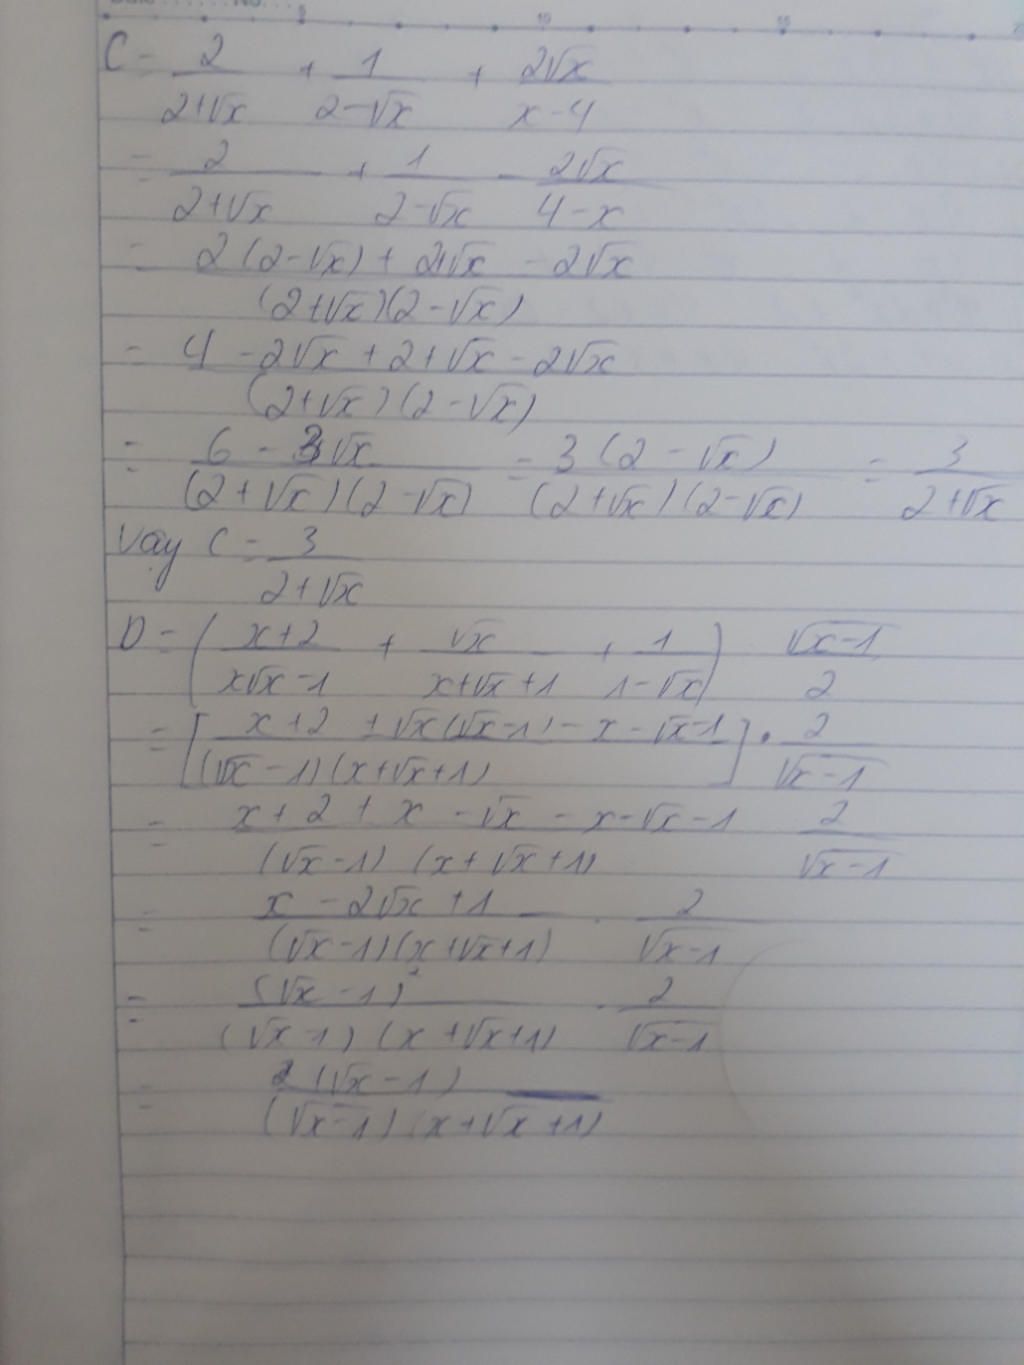 5 10 15
C = 2/(2+√x) + 1/(2-√x) + 2√x/(x-4)
= 2/(2+√x) + 1/(2-√x) - 2√x/(4-x)
= (2(2-√x) + 2+√x - 2√x)/((2+√x)(2-√x))
= (4 - 2√x + 2 + √x - 2√x)/((2+√x)(2-√x))
= (6 - 3√x)/((2+√x)(2-√x)) = 3(2-√x)/((2+√x)(2-√x)) = 3/(2+√x)
Vậy C = 3/(2+√x)
D = ((x+2)/(x√x-1) + √x/(x+√x+1) + 1/(1-√x)) √x-1/2
= [(x+2 + √x(√x-1) - x - √x - 1)/((√x-1)(x+√x+1))] . 2/√x-1
= (x+2+x-√x-x-√x-1)/((√x-1)(x+√x+1)) 2/√x-1
= (x-2√x+1)/((√x-1)(x+√x+1)) . 2/√x-1
= (√x-1)²/((√x-1)(x+√x+1)) . 2/√x-1
= 2(√x-1)/((√x-1)(x+√x+1))